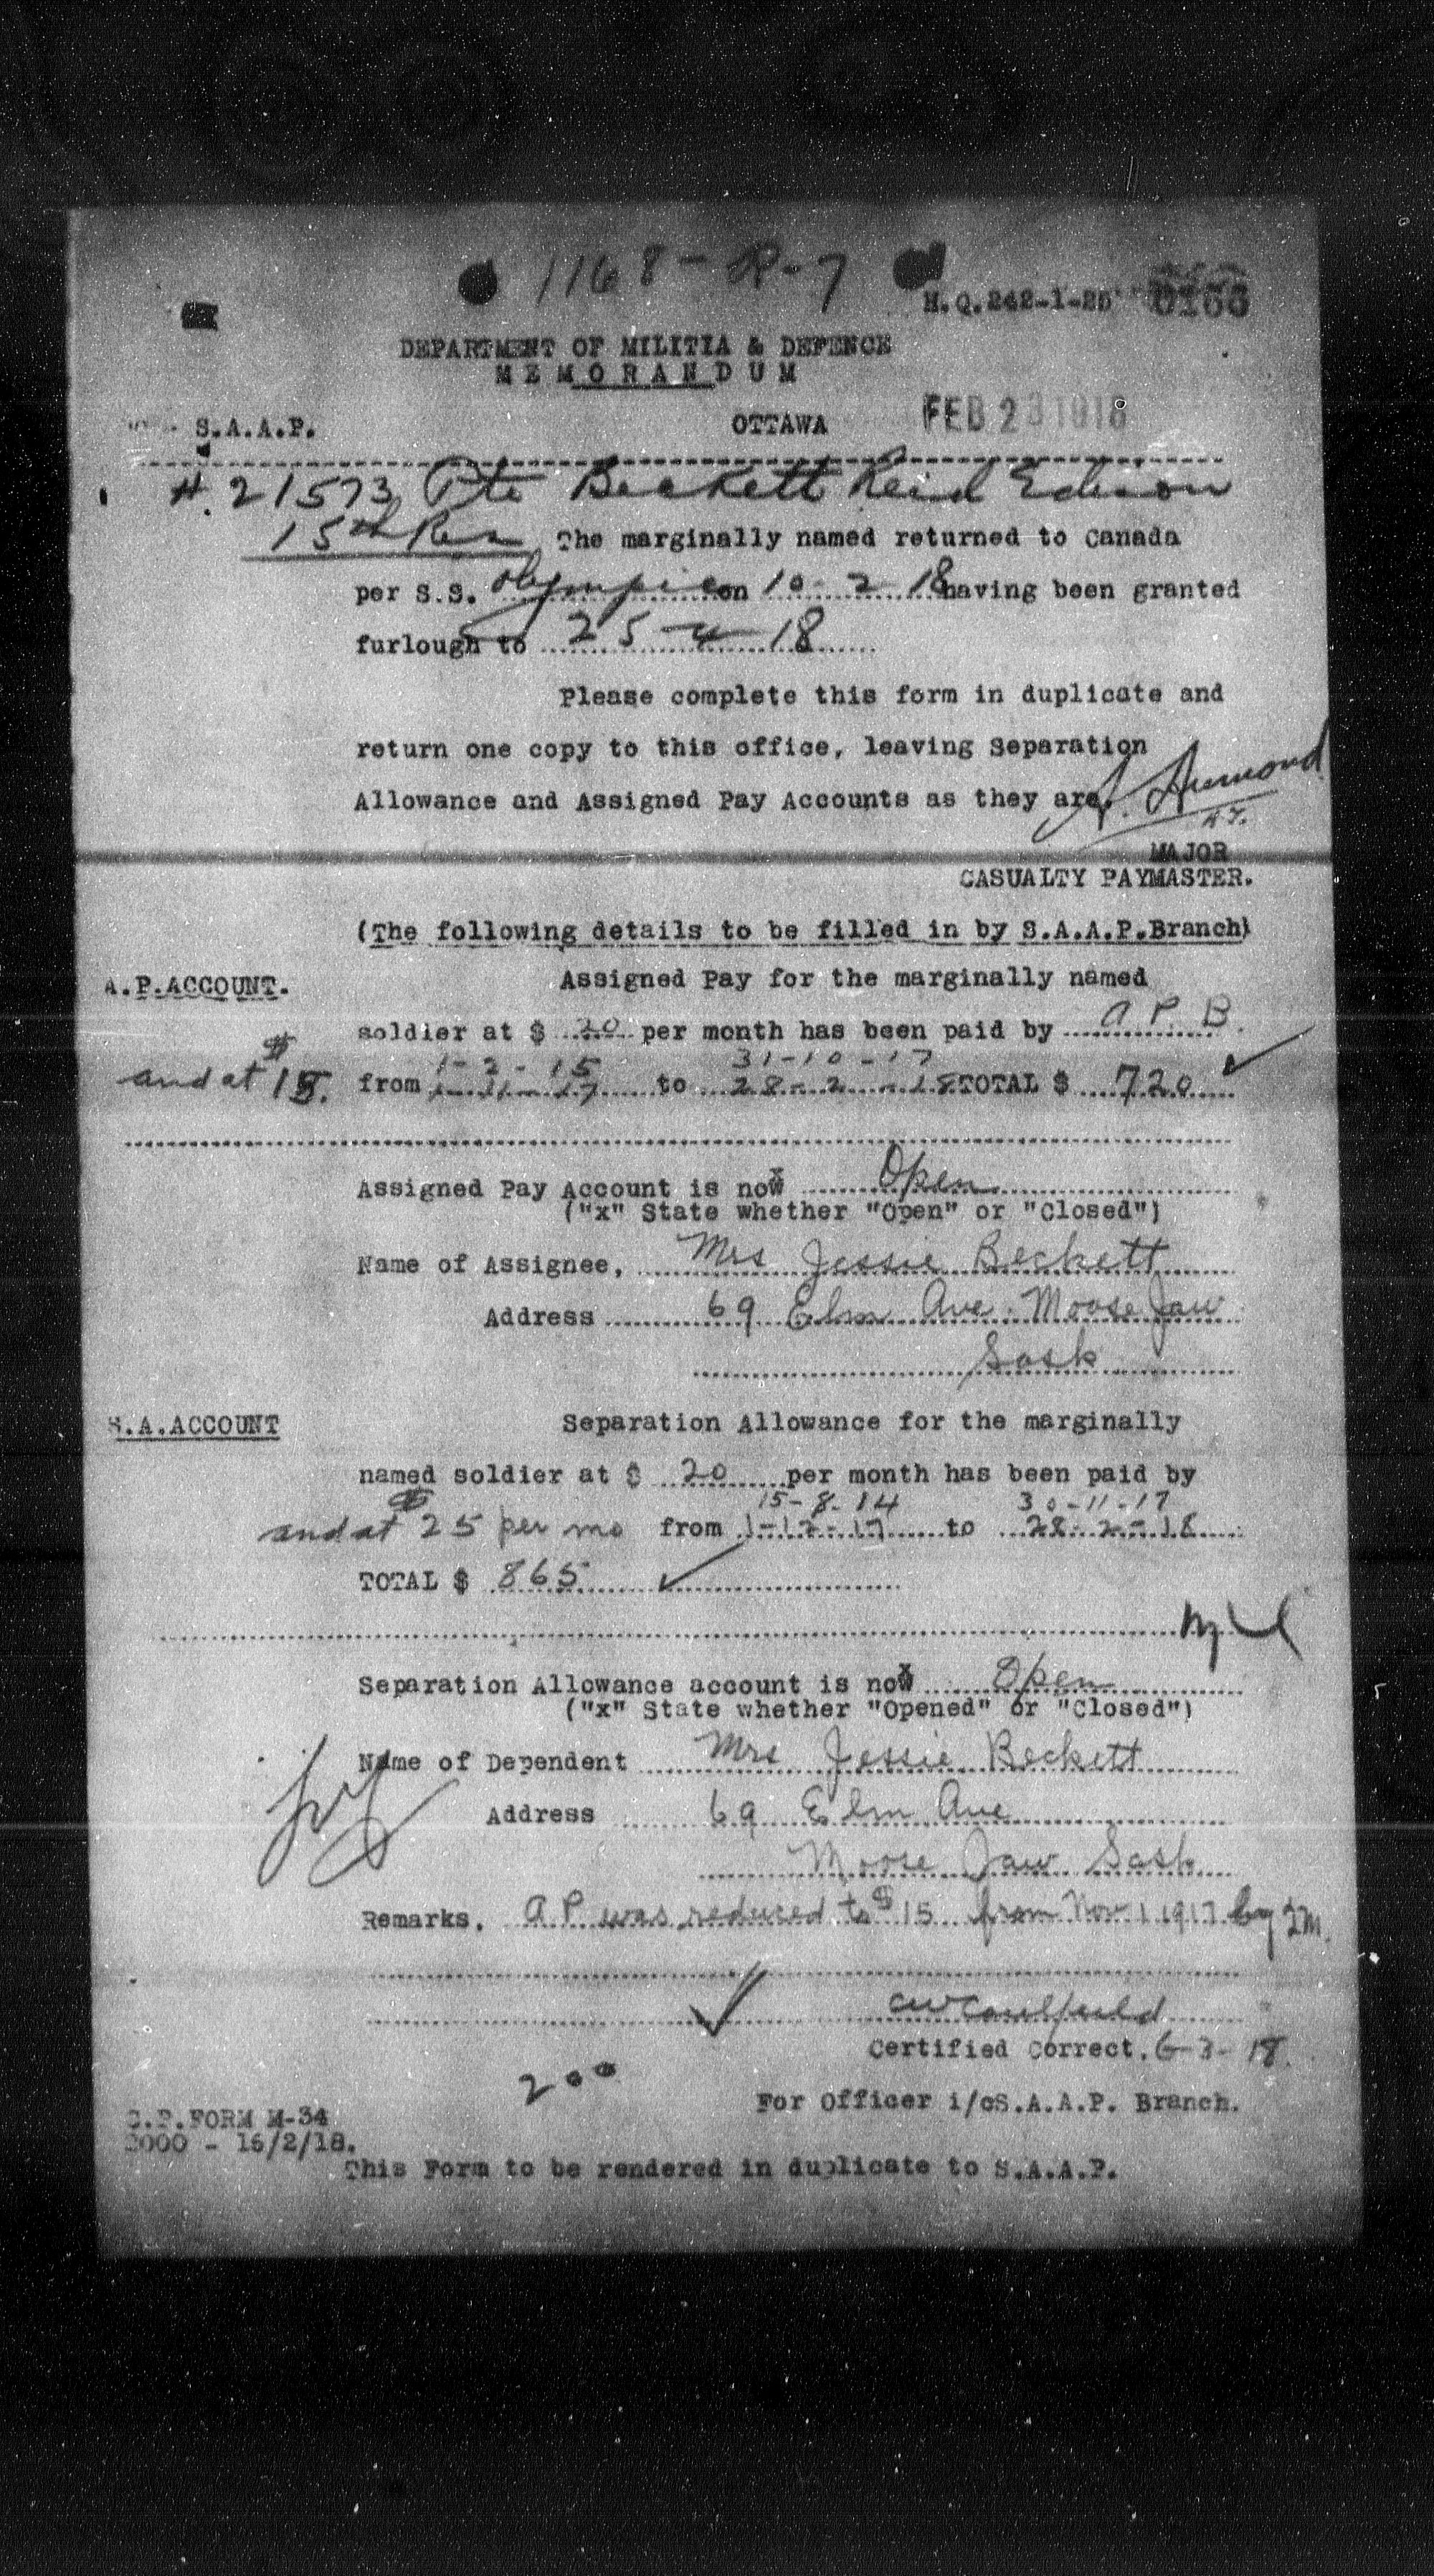 1168-R-7
H.Q.242-1-25 0166
DEPARTMENT OF MILITIA & DEFENCE
MEMORANDUM
S.A.A.P. OTTAWA FEB 23 1918
# 21573 Pte Beckett Reid Edison
15th Res The marginally named returned to Canada
per S.S. Olympic on 10-2-18 having been granted
furlough to 25-4-18
Please complete this form in duplicate and
return one copy to this office, leaving Separation
Allowance and Assigned Pay Accounts as they are.
MAJOR
CASUALTY PAYMASTER.
(The following details to be filled in by S.A.A.P.Branch)
A.P.ACCOUNT. Assigned Pay for the marginally named
soldier at $ 20 per month has been paid by A P B.
1-2-15 31-10-17
and at $15. from 1-11-17 to 28-2-18 TOTAL $ 720
Assigned Pay Account is now x Open
("x" State whether "Open" or "Closed")
Name of Assignee, Mrs Jessie Beckett
Address 69 Elm Ave. Moose Jaw
Sask
S.A.ACCOUNT Separation Allowance for the marginally
named soldier at $ 20 per month has been paid by
15-8-14 30-11-17
and at $25 per mo from 1-12-17 to 28-2-18
TOTAL $ 865
Separation Allowance account is now x Open
("x" State whether "Opened" or "Closed")
Name of Dependent Mrs Jessie Beckett
Address 69 Elm Ave
Moose Jaw Sask
Remarks. A P was reduced to $15 from Nov 1 1917 by
CW Caulfeild
Certified Correct. 6-3-18.
200
For Officer i/cS.A.A.P. Branch.
C.P.FORM M-34
2000 - 16/2/18.
This Form to be rendered in duplicate to S.A.A.P.